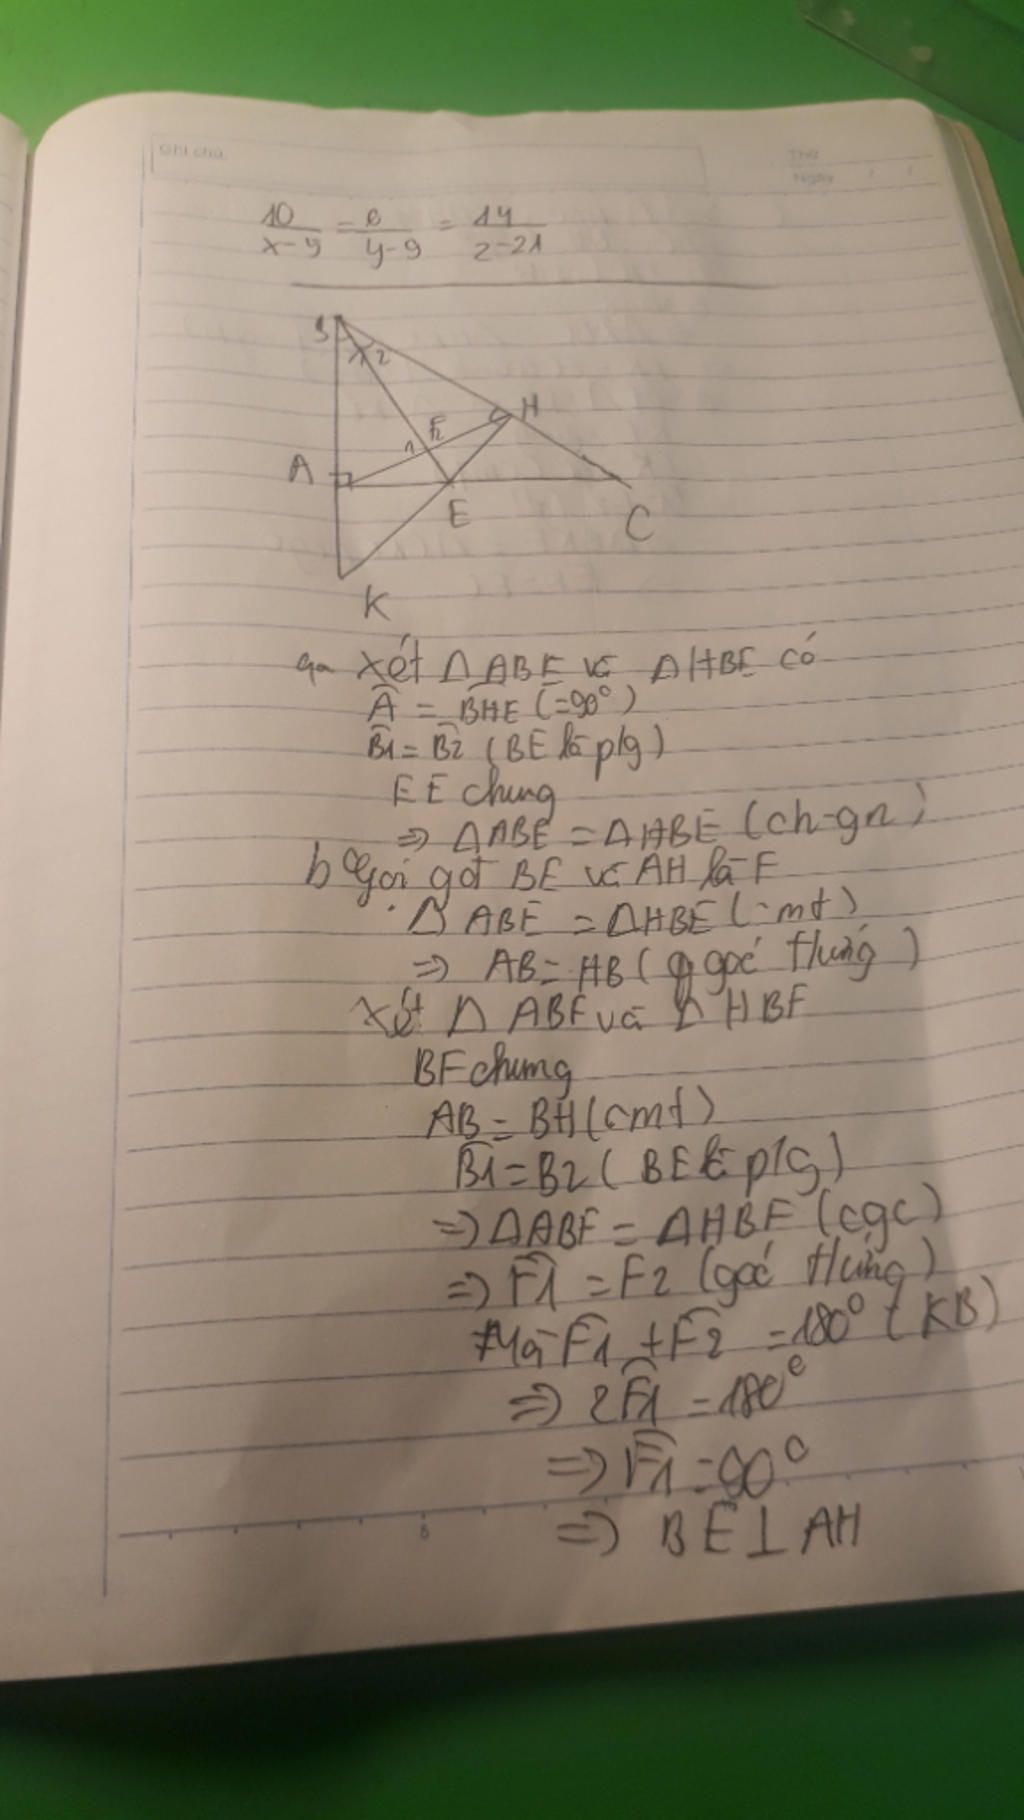 Ghi chú:
Thứ
Ngày
10/x-y = 6/y-9 = 14/z-21
B
2
H
F2
1
A
E
C
K
Xét Δ ABE và Δ HBE có
Â = BHE (=90°)
B1 = B2 (BE là p/g)
EE chung
=> ΔABE = ΔHBE (ch-gn)
b Gọi gđ BE và AH là F
Δ ABE = ΔHBE (cmt)
=> AB = HB ( góc tứng )
Xét Δ ABF và Δ HBF
BF chung
AB = BH (cmt)
B1 = B2 ( BE là p/g)
=> ΔABF = ΔHBF (cgc)
=> F1 = F2 (góc tứng)
Mà F1 + F2 = 180° (KB)
=> 2F1 = 180°
=> F1 = 90°
=> BE ⊥ AH